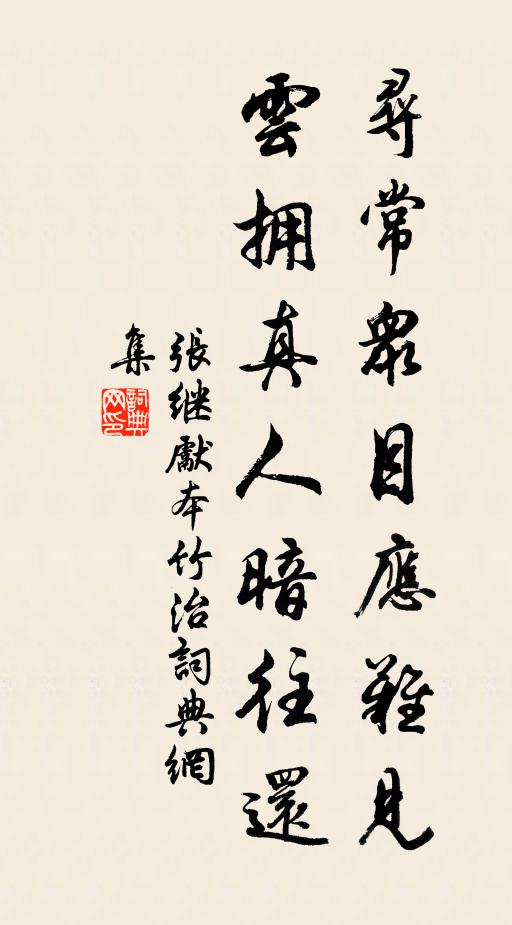 尋常眾目應難見
雲拥真人暗往還
張继獻本竹治詞典網
集
詞典
网印